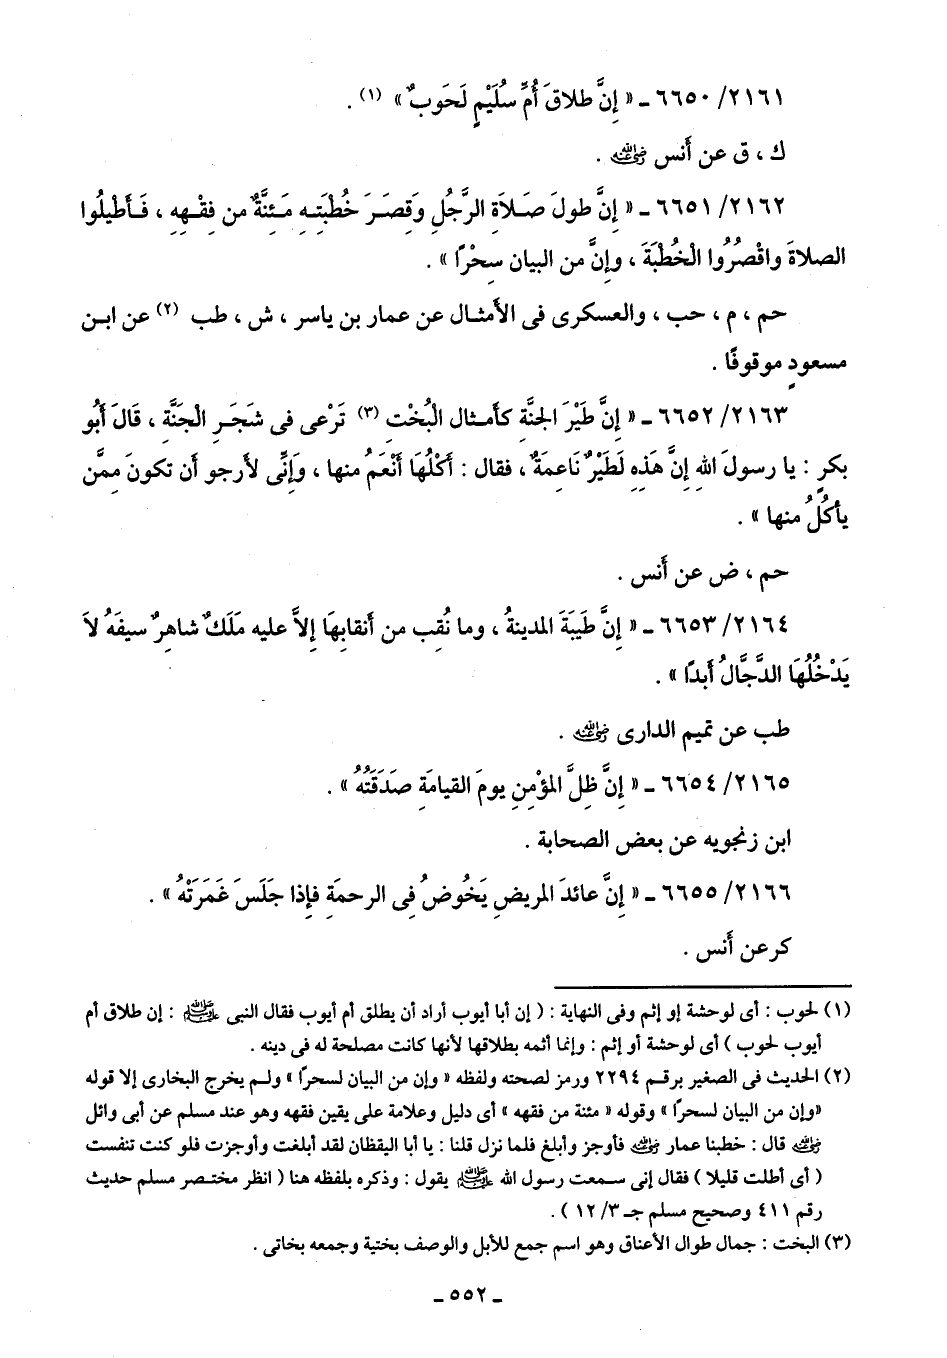 ٢١٦١/ ٦٦٥٠ ـ « إِنَّ طلاقَ أُمِّ سُلَيْمٍ لَحَوبٌ » (١) .
ك ، ق عن أَنس رضي الله عنه .
٢١٦٢/ ٦٦٥١ ـ « إِنَّ طولَ صَـلاَةِ الرَّجُلِ وَقِصَرَ خُطْبَتِـهِ مَـئِنَّةٌ من فِقْـهِهِ ، فَـأَطيلُوا
الصلاةَ واقْصُرُوا الْخُطْبَةَ ، وإِنَّ من البيان سِحْرًا » .
حم ، م ، حب ، والعسكرى فى الأَمثـال عن عمار بن ياسر ، ش ، طب (٢) عن ابـن
مسعودٍ موقوفًا .
٢١٦٣/ ٦٦٥٢ ـ « إِنَّ طَيْرَ الجنَّةِ كأَمـثال الْبُخْت (٣) تَرْعى فى شَجَـرِ الْجَنَّةِ ، قَالَ أَبُو
بكرٍ : يا رسولَ اللهِ إِنَّ هَذِهِ لَطَيْرٌ نَاعِمَةٌ ، فقال : أَكَلُهَا أَنْعَمُ منها ، وَإِنِّى لأَرجو أَن تكونَ مِمَّن
يأْكُلُ منها » .
حم ، ض عن أَنس .
٢١٦٤/ ٦٦٥٣ ـ « إِنَّ طَيْبَةَ المدينةُ ، وما نُقِب من أَنقابِهَا إِلاَّ عليه مَلَكٌ شاهِرٌ سيفَهُ لاَ
يَدْخُلُهَا الدَّجَّالُ أَبدًا » .
طب عن تميم الدارى رضي الله عنه .
٢١٦٥/ ٦٦٥٤ ـ « إِنَّ ظِلَّ المؤْمِنِ يومَ القيامَةِ صَدَقَتُهُ » .
ابن زنجويه عن بعض الصحابة .
٢١٦٦/ ٦٦٥٥ ـ « إِنَّ عائدَ المريضِ يَخُوضُ فِى الرحمةِ فإِذا جَلَسَ غَمَرَتْهُ » .
كر عن أَنس .
(١) لحوب : أى لوحشة إو إثم وفى النهاية : ( إن أبا أيوب أراد أن يطلق أم أيوب فقال النبى ﷺ : إن طلاق أم
أيوب لحوب ) أى لوحشة أو إثم : وإنما أثمه بطلاقها لأنها كانت مصلحة له فى دينه .
(٢) الحديث فى الصغير برقـم ٢٢٩٤ ورمز لصحته ولفظه « وإن من البيان لسحرًا » ولـم يخرج البخارى إلا قوله
«وإن من البيان لسحرًا » وقوله « مئنة من فقهه » أى دليل وعلامة على يقين فقهه وهو عند مسلم عن أبى وائل
رضي الله عنه قال : خطبنا عمار رضي الله عنه فأوجز وأبلغ فلما نزل قلنا : يا أبا اليقظان لقد أبلغت وأوجزت فلو كنت تنفست
( أى أطلت قليلا ) فقال إنى سـمعت رسول الله ﷺ يقول : وذكره بلفظه هنا ( انظر مختـصر مسلم حديث
رقم ٤١١ وصحيح مسلم جـ ٣/ ١٢ ) .
(٣) البخت : جمال طوال الأعناق وهو اسم جمع للأبل والوصف بختية وجمعه بخاتى .
ـ ٥٥٢ ـ